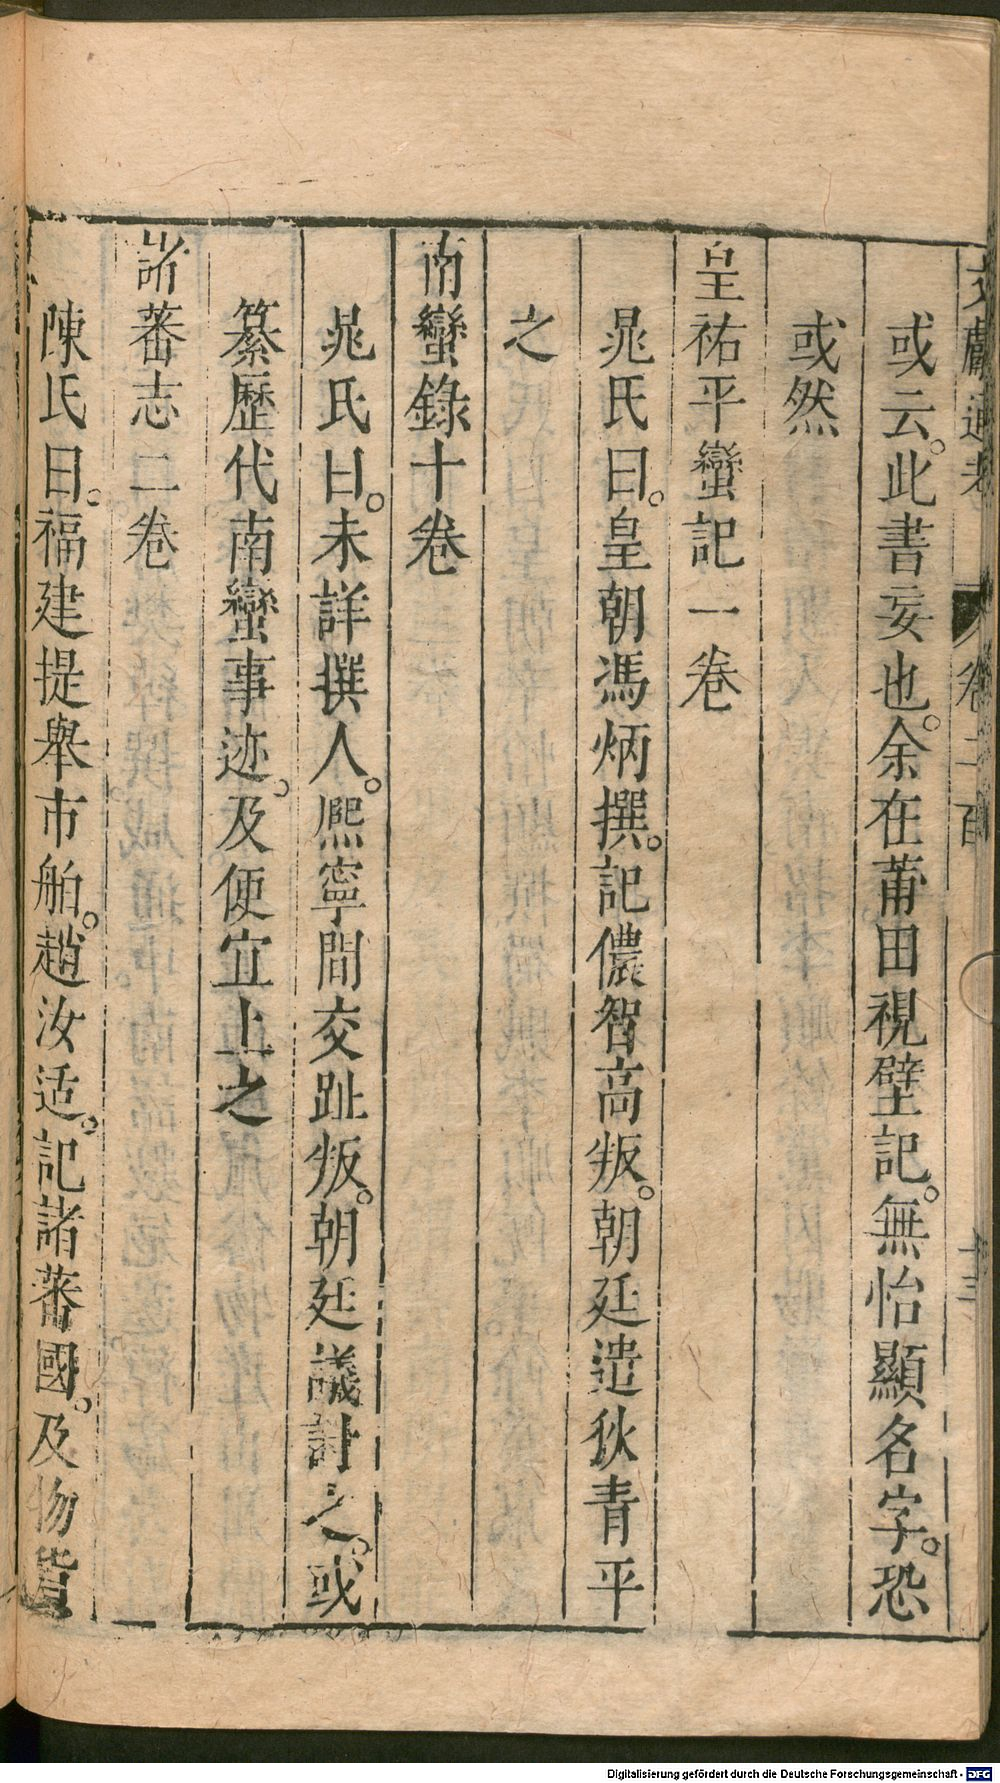 文獻通考 卷二百 十三
或云。此書妄也。余在莆田視壁記。無怡顯名字。恐
或然
皇祐平蠻記一卷
晁氏曰。皇朝馮炳撰。記儂智高叛。朝廷遣狄青平
之
南蠻錄十卷
晁氏曰。未詳撰人。熈寧間交趾叛。朝廷議討之。或
纂歷代南蠻事迹。及便宜上之
諸蕃志二卷
陳氏曰。福建提舉市舶。趙汝适。記諸蕃國。及物貨
Digitalisierung gefördert durch die Deutsche Forschungsgemeinschaft - DFG